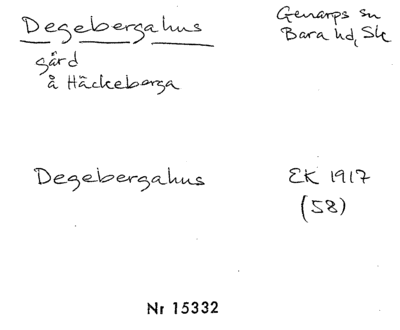 Degebergahus
Genarps sn
Bara hd, Sk
gård
å Häckeberga
Degebergahus
EK 1917
(58)
Nr 15332